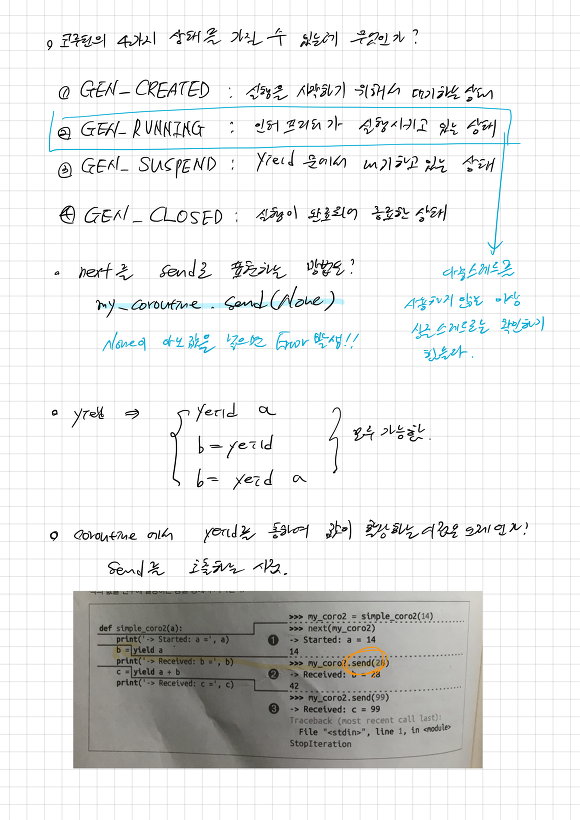 코루틴의 4가지 상태를 가질 수 있는데 무엇인가?
① GEN_CREATED : 실행을 시작하기 위해서 대기하는 상태
② GEN_RUNNING : 인터프리터가 실행시키고 있는 상태
③ GEN_SUSPEND : yield 문에서 대기하고 있는 상태
④ GEN_CLOSED : 실행이 완료되어 종료한 상태
다중스레드를
사용하지 않는 이상
싱글스레드로는 확인하기
힘들다.
next를 send로 표현하는 방법은?
my_coroutine.send(None)
None이 아닌 값을 넣으면 Error 발생!!
⇒
yeild a
b = yeild
b = yeild a
모두 가능함.
coroutine 에서 yeild를 통하여 값이 할당하는 시점은 언제인가?
send를 호출하는 시점.
def simple_coro2(a):
print('-> Started: a =', a)
b = yield a
print('-> Received: b =', b)
c = yield a + b
print('-> Received: c =', c)
>>> my_coro2 = simple_coro2(14)
>>> next(my_coro2)
❶ -> Started: a = 14
14
>>> my_coro2.send(28)
❷ -> Received: b = 28
42
>>> my_coro2.send(99)
❸ -> Received: c = 99
Traceback (most recent call last):
File "<stdin>", line 1, in <module>
StopIteration